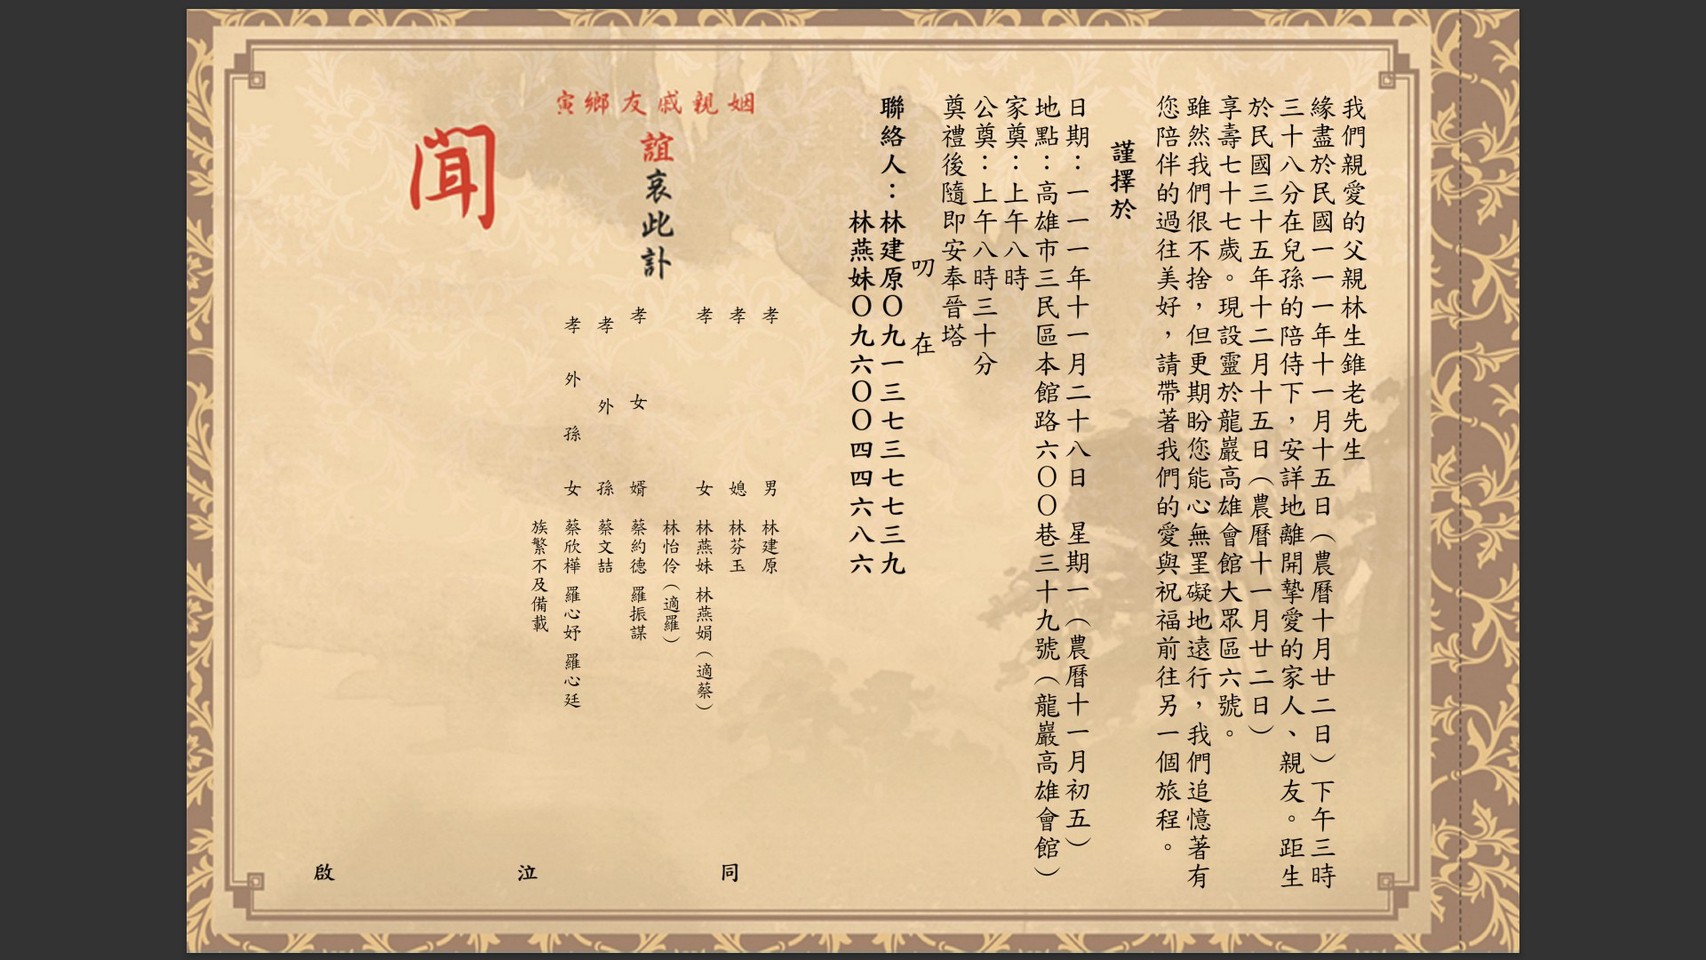 我們親愛的父親林生錐老先生
緣盡於民國一一一年十一月十五日（農曆十月廿二日）下午三時
三十八分在兒孫的陪侍下，安詳地離開摯愛的家人、親友。距生
於民國三十五年十二月十五日（農曆十一月廿二日）
享壽七十七歲。現設靈於龍巖高雄會館大眾區六號。
雖然我們很不捨，但更期盼您能心無罣礙地遠行，我們追憶著有
您陪伴的過往美好，請帶著我們的愛與祝福前往另一個旅程。
謹擇於
日期：一一一年十一月二十八日 星期一（農曆十一月初五）
地點：高雄市三民區本館路六〇〇巷三十九號（龍巖高雄會館）
家奠：上午八時
公奠：上午八時三十分
奠禮後隨即安奉晉塔
叨 在
聯絡人：林建原〇九一三七三七七三九
林燕妹〇九六〇〇四四六八六
姻親戚友鄉寅
誼哀此訃
聞
孝 男 林建原
孝 媳 林芬玉
孝 女 林燕妹 林燕娟（適蔡）
林怡伶（適羅）
孝 女 婿 蔡約德 羅振謀
孝 外 孫 蔡文喆
孝 外 孫 女 蔡欣樺 羅心妤 羅心廷
族繁不及備載
同 泣 啟